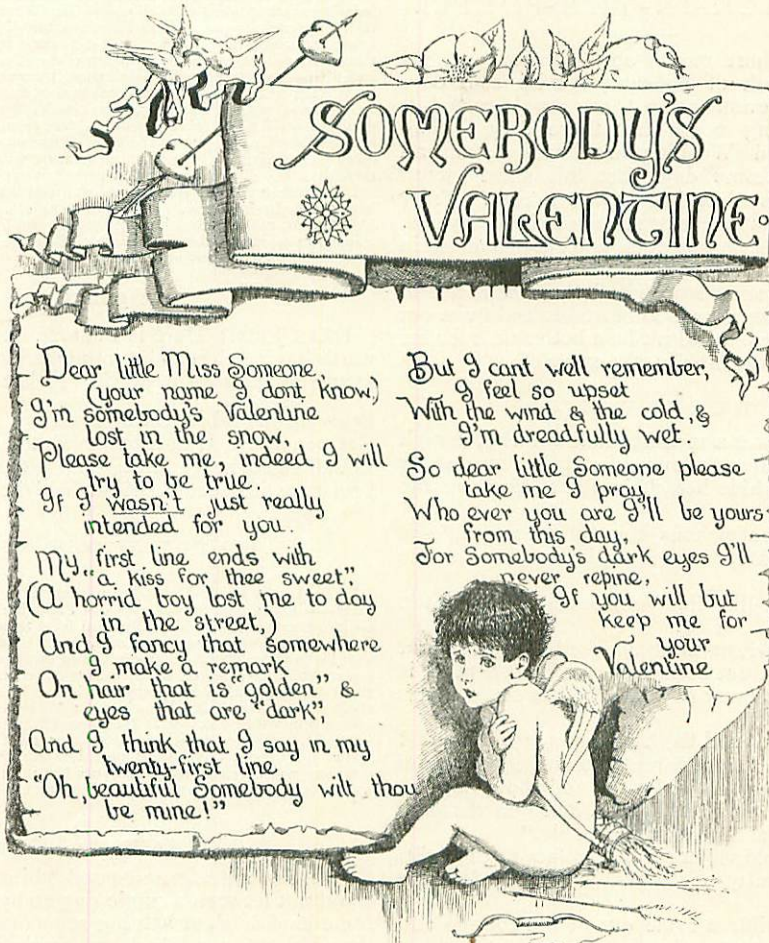 SOMEBODY'S
VALENTINE.
Dear little Miss Someone,
(your name I dont know,)
I'm somebody's Valentine
lost in the snow,
Please take me, indeed I will
try to be true.
If I wasn't just really
intended for you.
My first line ends with
"a kiss for thee sweet",
(A horrid boy lost me to day
in the street,)
And I fancy that somewhere
I make a remark
On hair that is "golden" &
eyes that are "dark",
And I think that I say in my
twenty-first line
"Oh, beautiful Somebody wilt thou
be mine!"
But I cant well remember,
I feel so upset
With the wind & the cold, &
I'm dreadfully wet.
So dear little Someone please
take me I pray,
Who ever you are I'll be yours
from this day,
For Somebody's dark eyes I'll
never repine,
If you will but
keep me for
your
Valentine